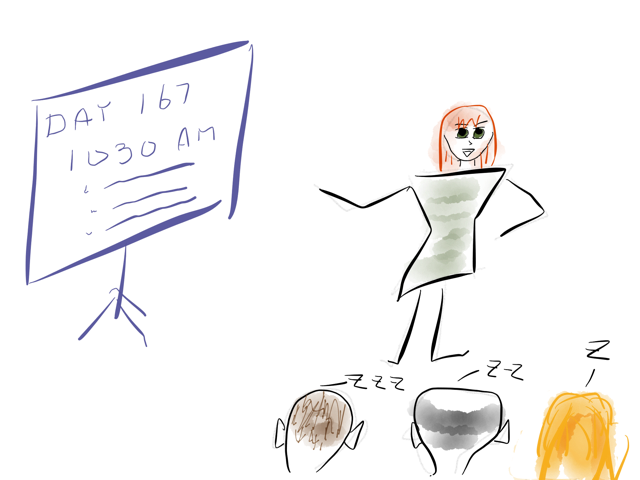 DAY 167
1030 AM
ZZZ
Z-Z
Z